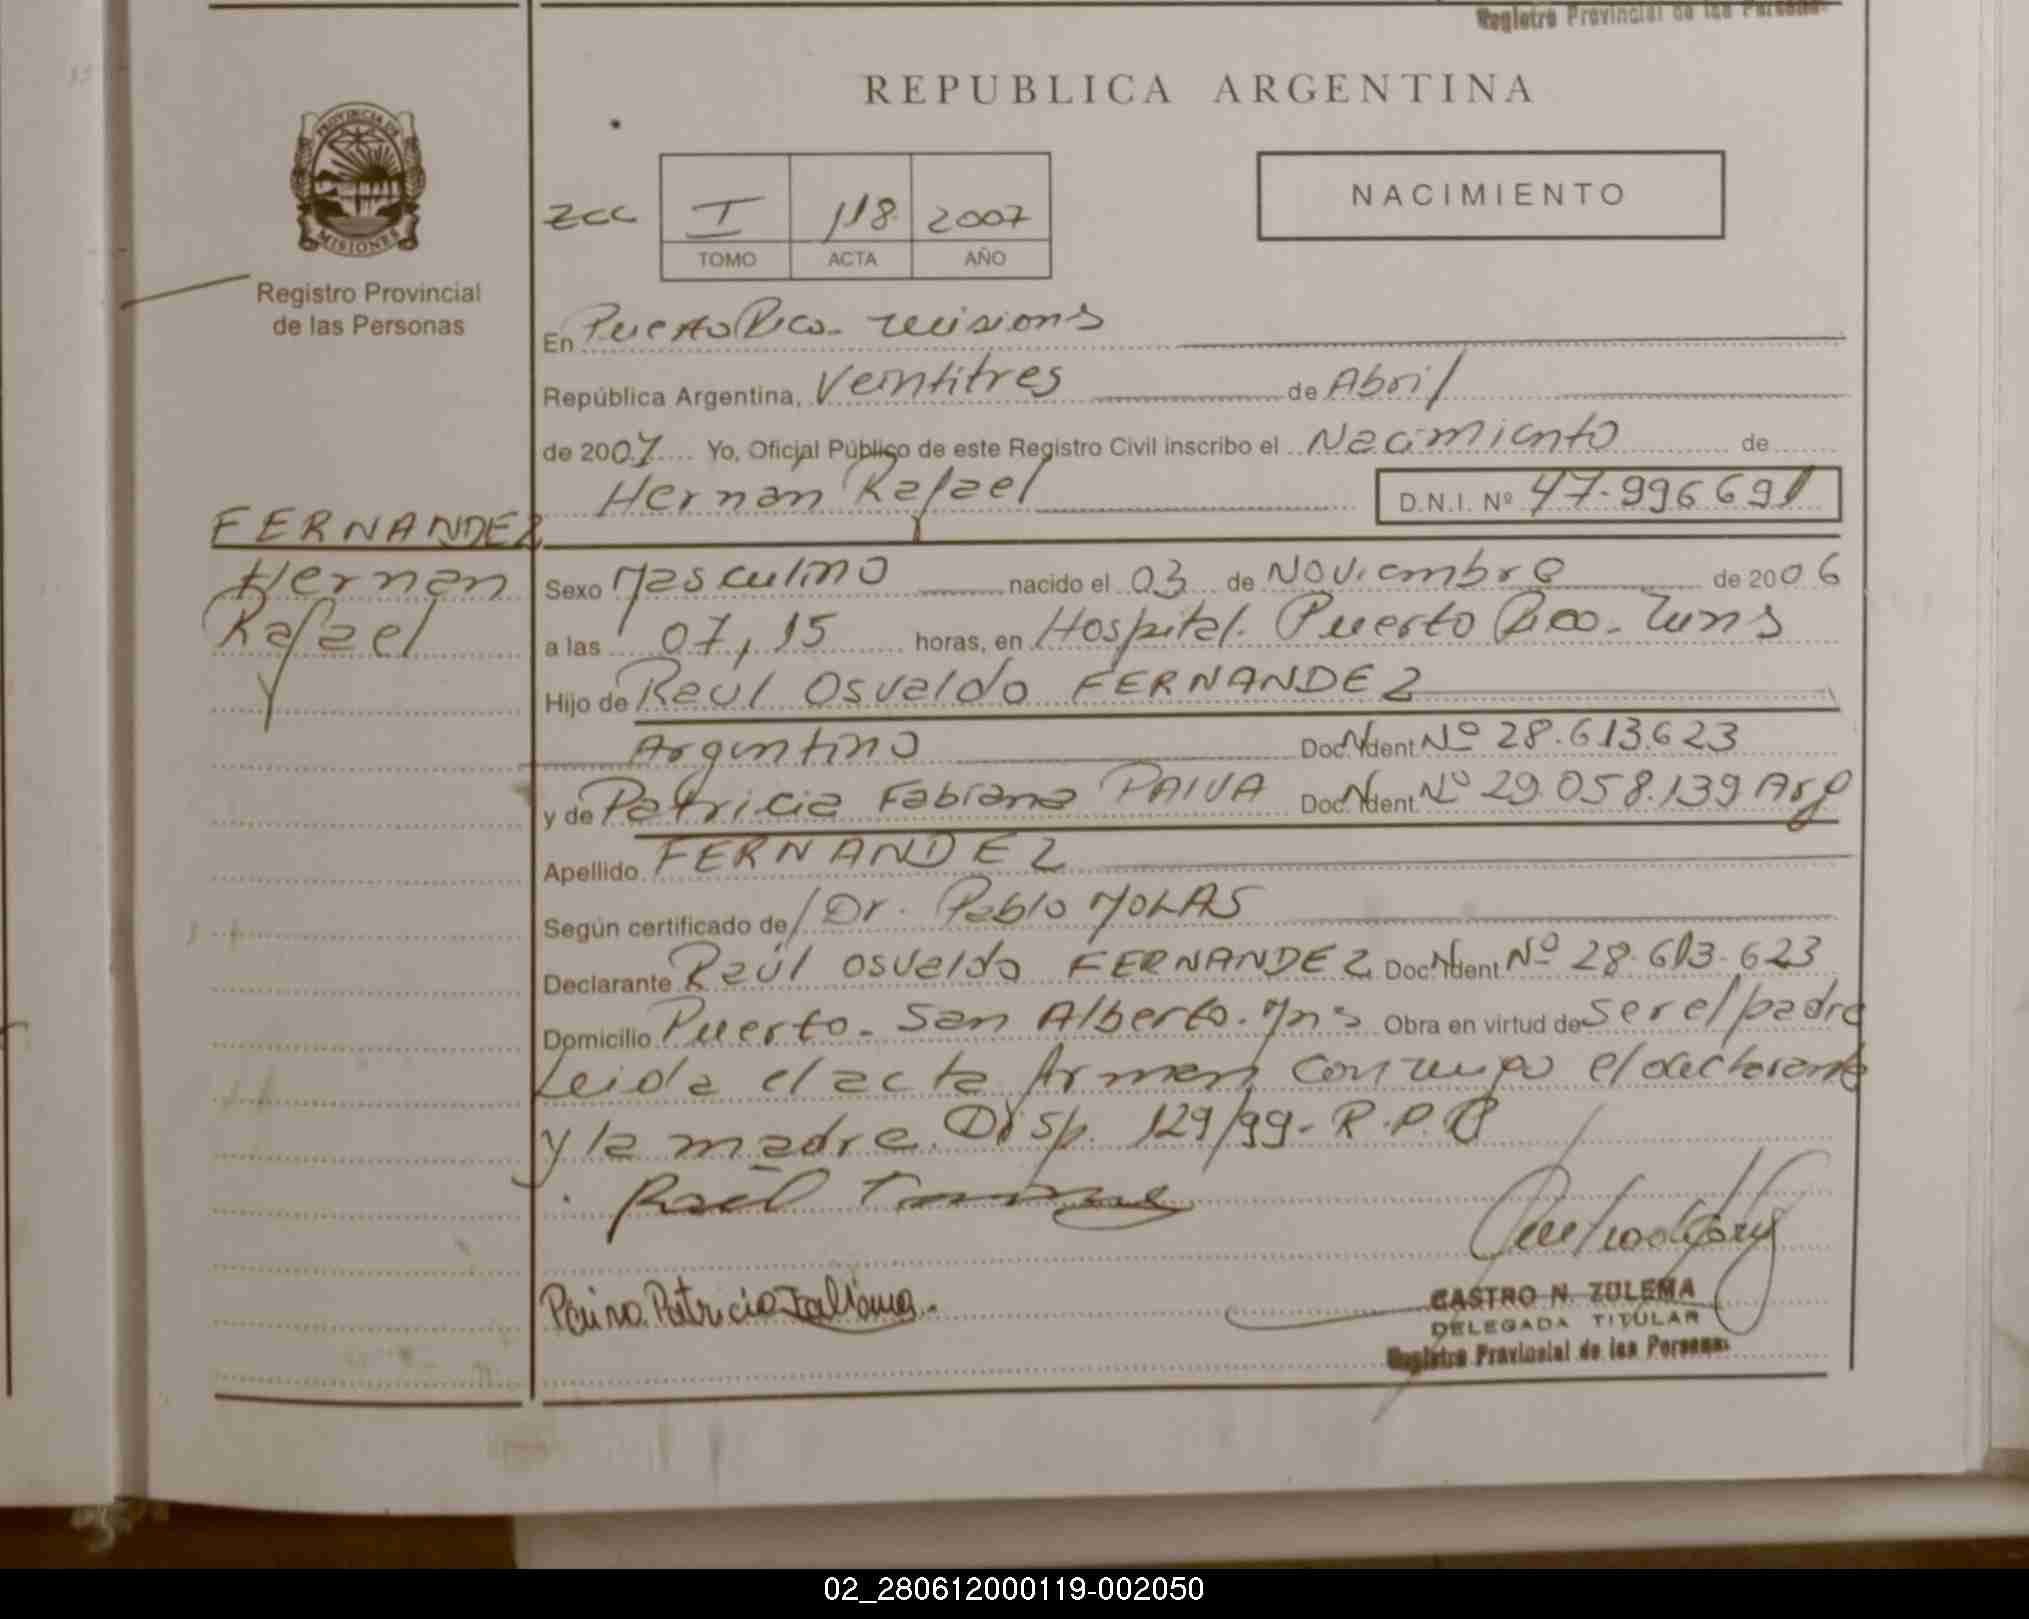 Registro Provincial de las Personas
REPUBLICA ARGENTINA
PROVINCIA DE
MISIONES
Registro Provincial
de las Personas
NACIMIENTO
I 118 2007
TOMO ACTA AÑO
En Puerto Rico - misiones
República Argentina, Veintitres de Abril
de 2007 Yo, Oficial Público de este Registro Civil inscribo el Nacimiento de
Hernan Rafael D.N.I. Nº 47.996691
FERNANDEZ
Hernan
Rafael
Sexo Masculino nacido el 03 de Noviembre de 2006
a las 07,15 horas, en Hospital. Puerto Rico - Mns
Hijo de Raúl Osvaldo FERNANDEZ
Argentino Doc. Ident. Nº 28.613.623
y de Patricia Fabiana PAIVA Doc. Ident. Nº 29.058.139 Arg
Apellido FERNANDEZ
Según certificado de Dr. Pablo MOLAS
Declarante Raúl Osvaldo FERNANDEZ Doc. Ident. Nº 28.613.623
Domicilio Puerto - San Alberto. Mns Obra en virtud de ser el padre
Leida el acta firman conmigo el declarante
y la madre. Disp. 129/99 - R.P.P
Paiva Patricia Fabiana.
CASTRO N. ZULEMA
DELEGADA TITULAR
Registro Provincial de las Personas
02_280612000119-002050